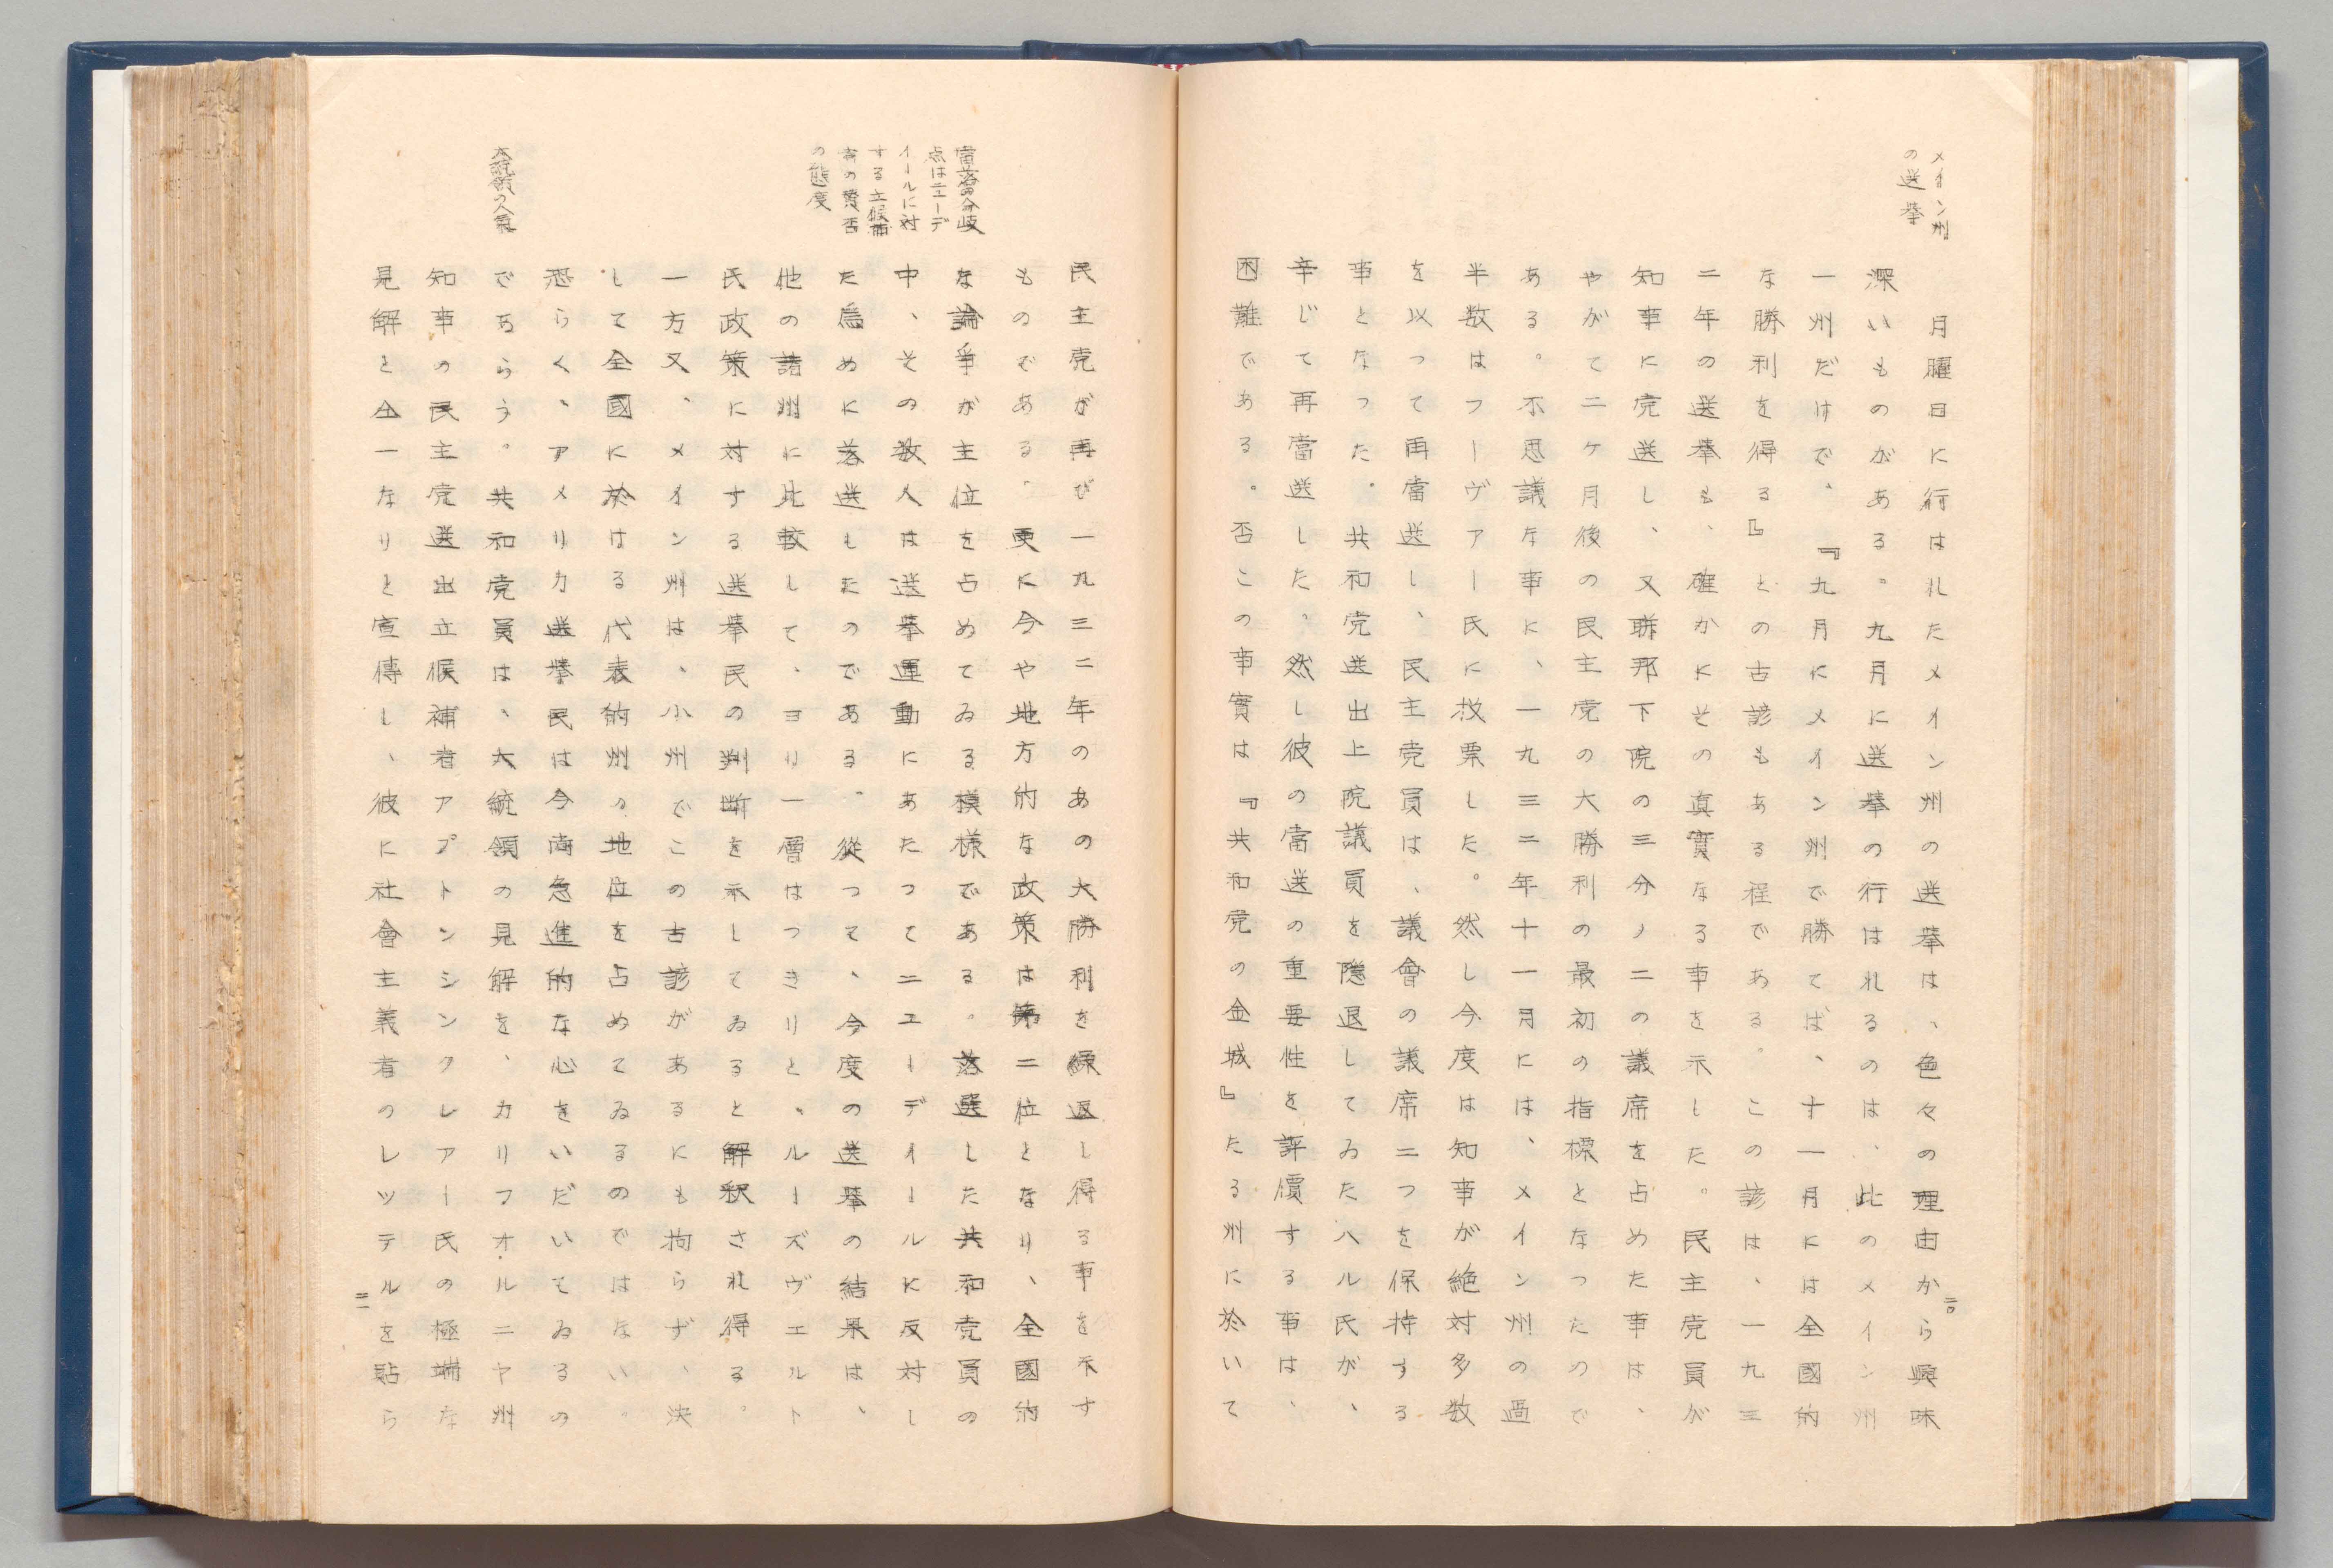 メイン州
の選挙
月曜日に行はれたメイン州の選挙は、色々の理由から興味
深いものがある。九月に選挙の行はれるのは、此のメイン州
一州だけで、『九月にメイン州で勝てば、十一月には全國的
な勝利を得る』との古諺もある程である。この諺は、一九三
二年の選挙も、確かにその真實なる事を示した。民主党員が
知事に党選し、又聯邦下院の三分ノ二の議席を占めた事は、
やがて二ヶ月後の民主党の大勝利の最初の指標となつたので
ある。不思議な事に、一九三二年十一月には、メイン州の過
半数はフーヴアー氏に投票した。然し今度は知事が絶対多数
を以つて再當選し、民主党員は、議會の議席二つを保持する
事となつた。共和党選出上院議員を隠退してゐたハル氏が、
辛じて再當選した。然し彼の當選の重要性を評價する事は、
困難である。否この事實は『共和党の金城』たる州に於いて
二〇
民主党が再び一九三二年のあの大勝利を繰返し得る事を示す
ものである。更に今や地方的な政策は第二位となり、全國的
な論争が主位を占めてゐる模様である。落選した共和党員の
中、その数人は選挙運動にあたつてニユーデイールに反対し
た爲めに落選したのである。從つて、今度の選挙の結果は、
他の諸州に比較して、ヨリ一層はつきりと、ルーズヴエルト
氏政策に対する選挙民の判断を示してゐると解釈され得る。
一方又、メイン州は、小州でこの古諺があるにも拘らず、決
して全國に於ける代表的州の地位を占めてゐるのではない。
恐らく、アメリカ選挙民は今尚急進的な心をいだいてゐるの
であらう。共和党員は、大統領の見解を、カリフオルニヤ州
知事の民主党選出立候補者アプトンシンクレアー氏の極端な
見解と仝一なりと宣傳し、彼に社會主義者のレツテルを貼ら
當落の分岐
点はニユーデ
イールに対
する立候補
者の賛否
の態度
大統領の人氣
二一